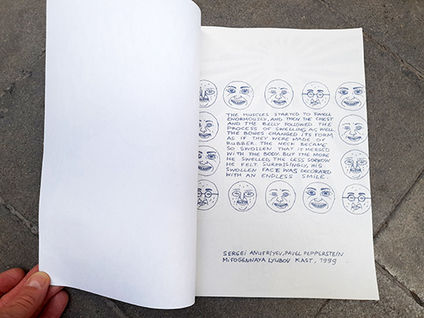 THE MUSCLES STARTED TO SWELL
ENORMOUSLY, AND THEN THE CHEST
AND THE BELLY FOLLOWED THE
PROCESS OF SWELLING AS WELL.
THE BONES CHANGED ITS FORM
AS IF THEY WERE MADE OF
RUBBER. THE NECK BECAME
SO SWOLLEN THAT IT MERGED
WITH THE BODY. BUT THE MORE
HE SWELLED, THE LESS SORROW
HE FELT. SURPRISINGLY, HIS
SWOLLEN FACE WAS DECORATED
WITH AN ENDLESS SMILE.
SERGEI ANUFRIYEV, PAVEL PEPPERSTEIN
MIFOGENNAYA LYUBOV KAST, 1999